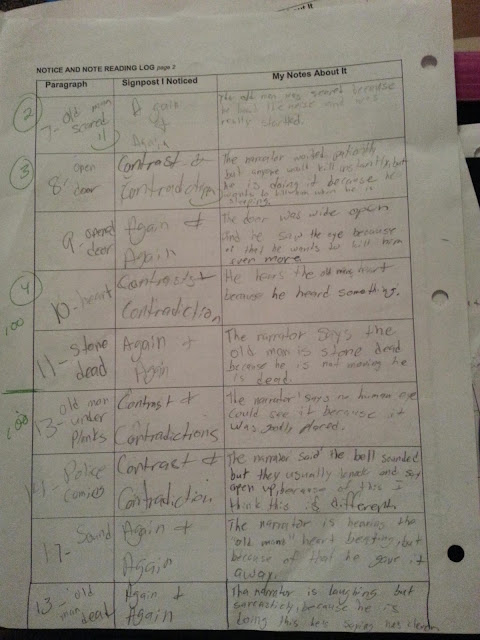 NOTICE AND NOTE READING LOG page 2
Paragraph
Signpost I Noticed
My Notes About It
2
7- old man
scared
Again
&
Again
The old man was scared because
he heard the noise and was
really startled.
3
8- open
door
Contrast &
Contradiction
The narrator waited patiently
but anyone would kill instantly, but
he is doing it because he
sleeping
9- opened
door
Again &
Again
The door was wide open
and he saw the eye because
of that he wants to kill him
even more
4
100
10- heart
Contrast &
Contradiction
He hears the old mans heart
because he heard something.
11- stone
dead
Again &
Again
The narrator says the
old man is stone dead
because he is not moving he
is dead.
100
13- old man
under
planks
Contrast &
Contradictions
The narrator says no human eye
could see it because it
was placed.
14- Police
Contrast &
Contradiction
The narrator said the bell sounded
but they usually knock and say
open up, because of this I
think this is different.
17- Sound
Again &
Again
The narrator is hearing the
"old mans" heart beating, but
because of that he gave it
away.
13- old
man
dead
Again &
Again
The narrator is laughing but
because he is
doing this he's saying